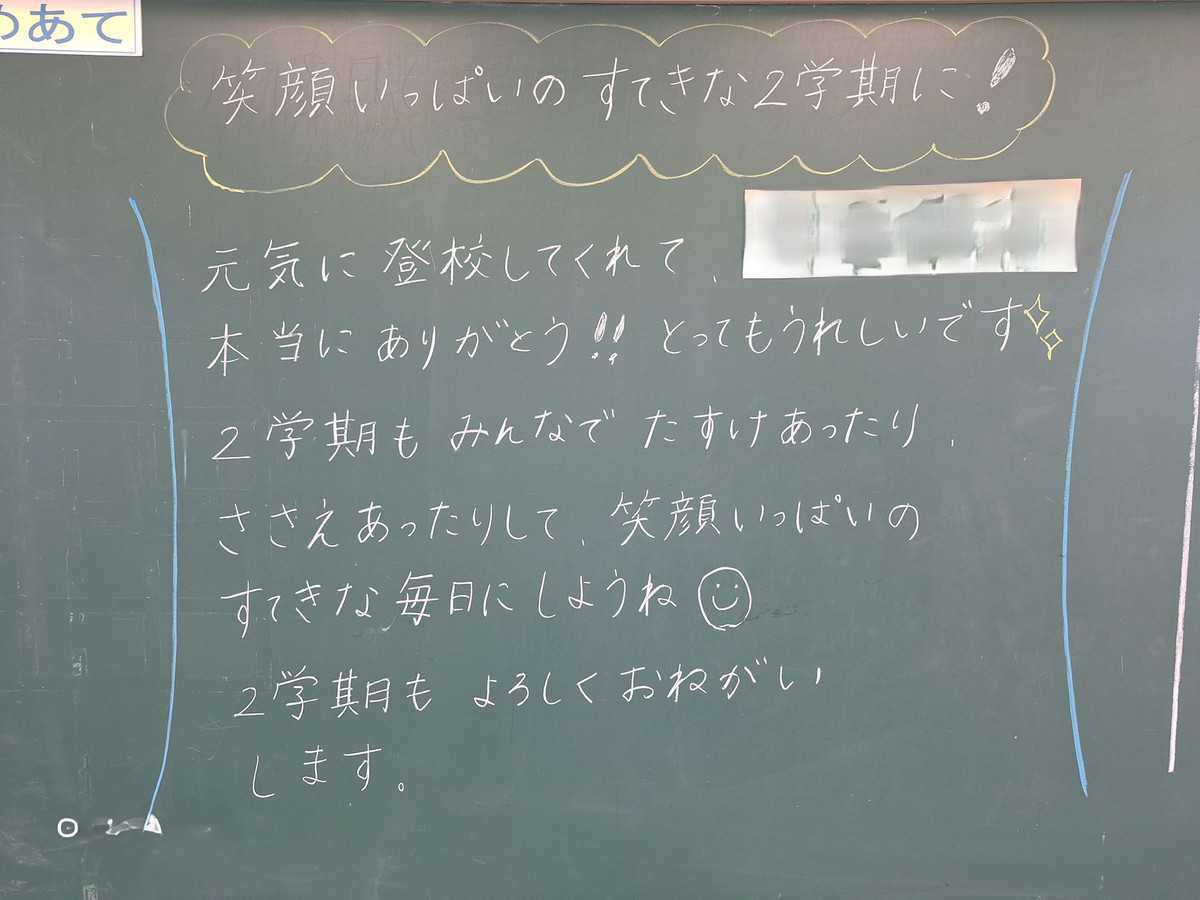 めあて
笑顔いっぱいの すてきな2学期に!
元気に 登校してくれて、
本当に ありがとう!! とってもうれしいです
2学期も みんなで たすけあったり、
ささえあったりして、笑顔いっぱいの
すてきな 毎日に しようね
2学期も よろしく おねがい
します。